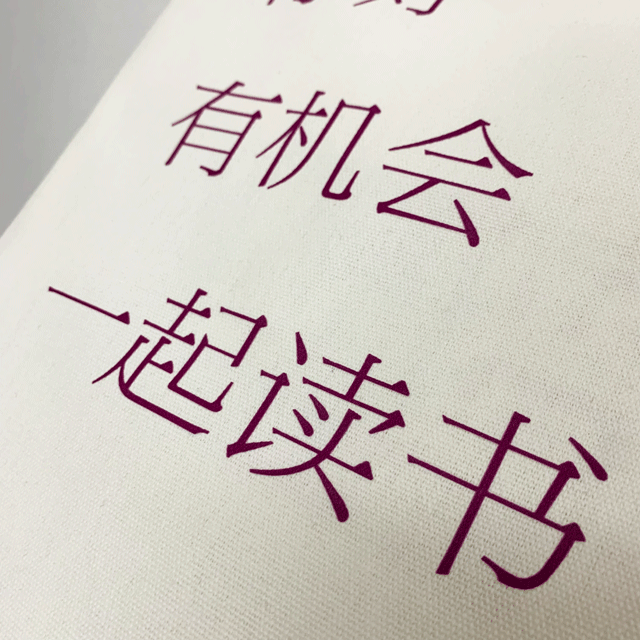 有机会
一起读书